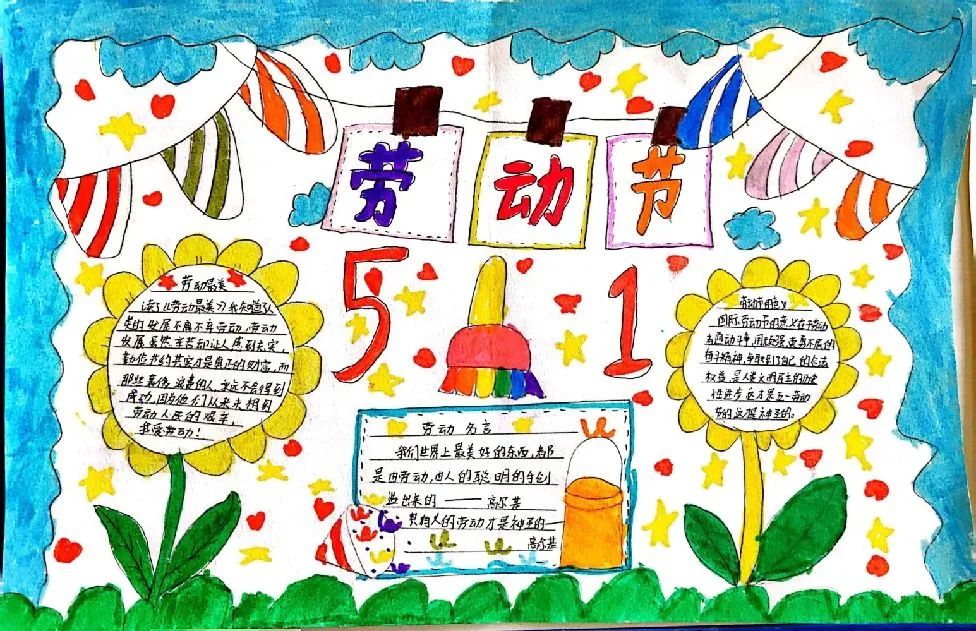 劳动节
5 1
劳动最美
读了《劳动最美》我知道,人
类的发展不离不弃劳动,劳动
发展虽然辛苦却让人感到充实,
勤俭节约其实才是真正的财富,而
那些懒惰、浪费的人,永远不会得到
成功,因为他们从来未想到
劳动人民的艰辛,
我爱劳动!
劳动节的意义
国际劳动节的意义在于劳动
者通过斗争,用顽强、英勇不屈的
奋斗精神,争取到了自己的合法
权益,是人类文明民主的历史
性进步,这才是五一劳动
节的
劳动名言
我们世界上最美好的东西,都
是由劳动,由人的聪明的手创
造出来的——高尔基
只有人的劳动才是神圣的——
高尔基